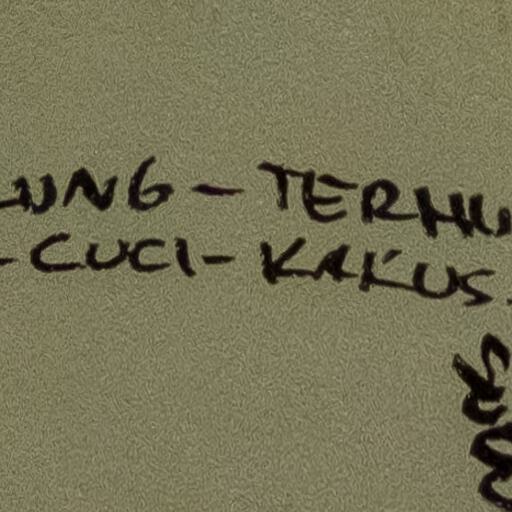 UNG - TERHU
- CUCI - KAKUS